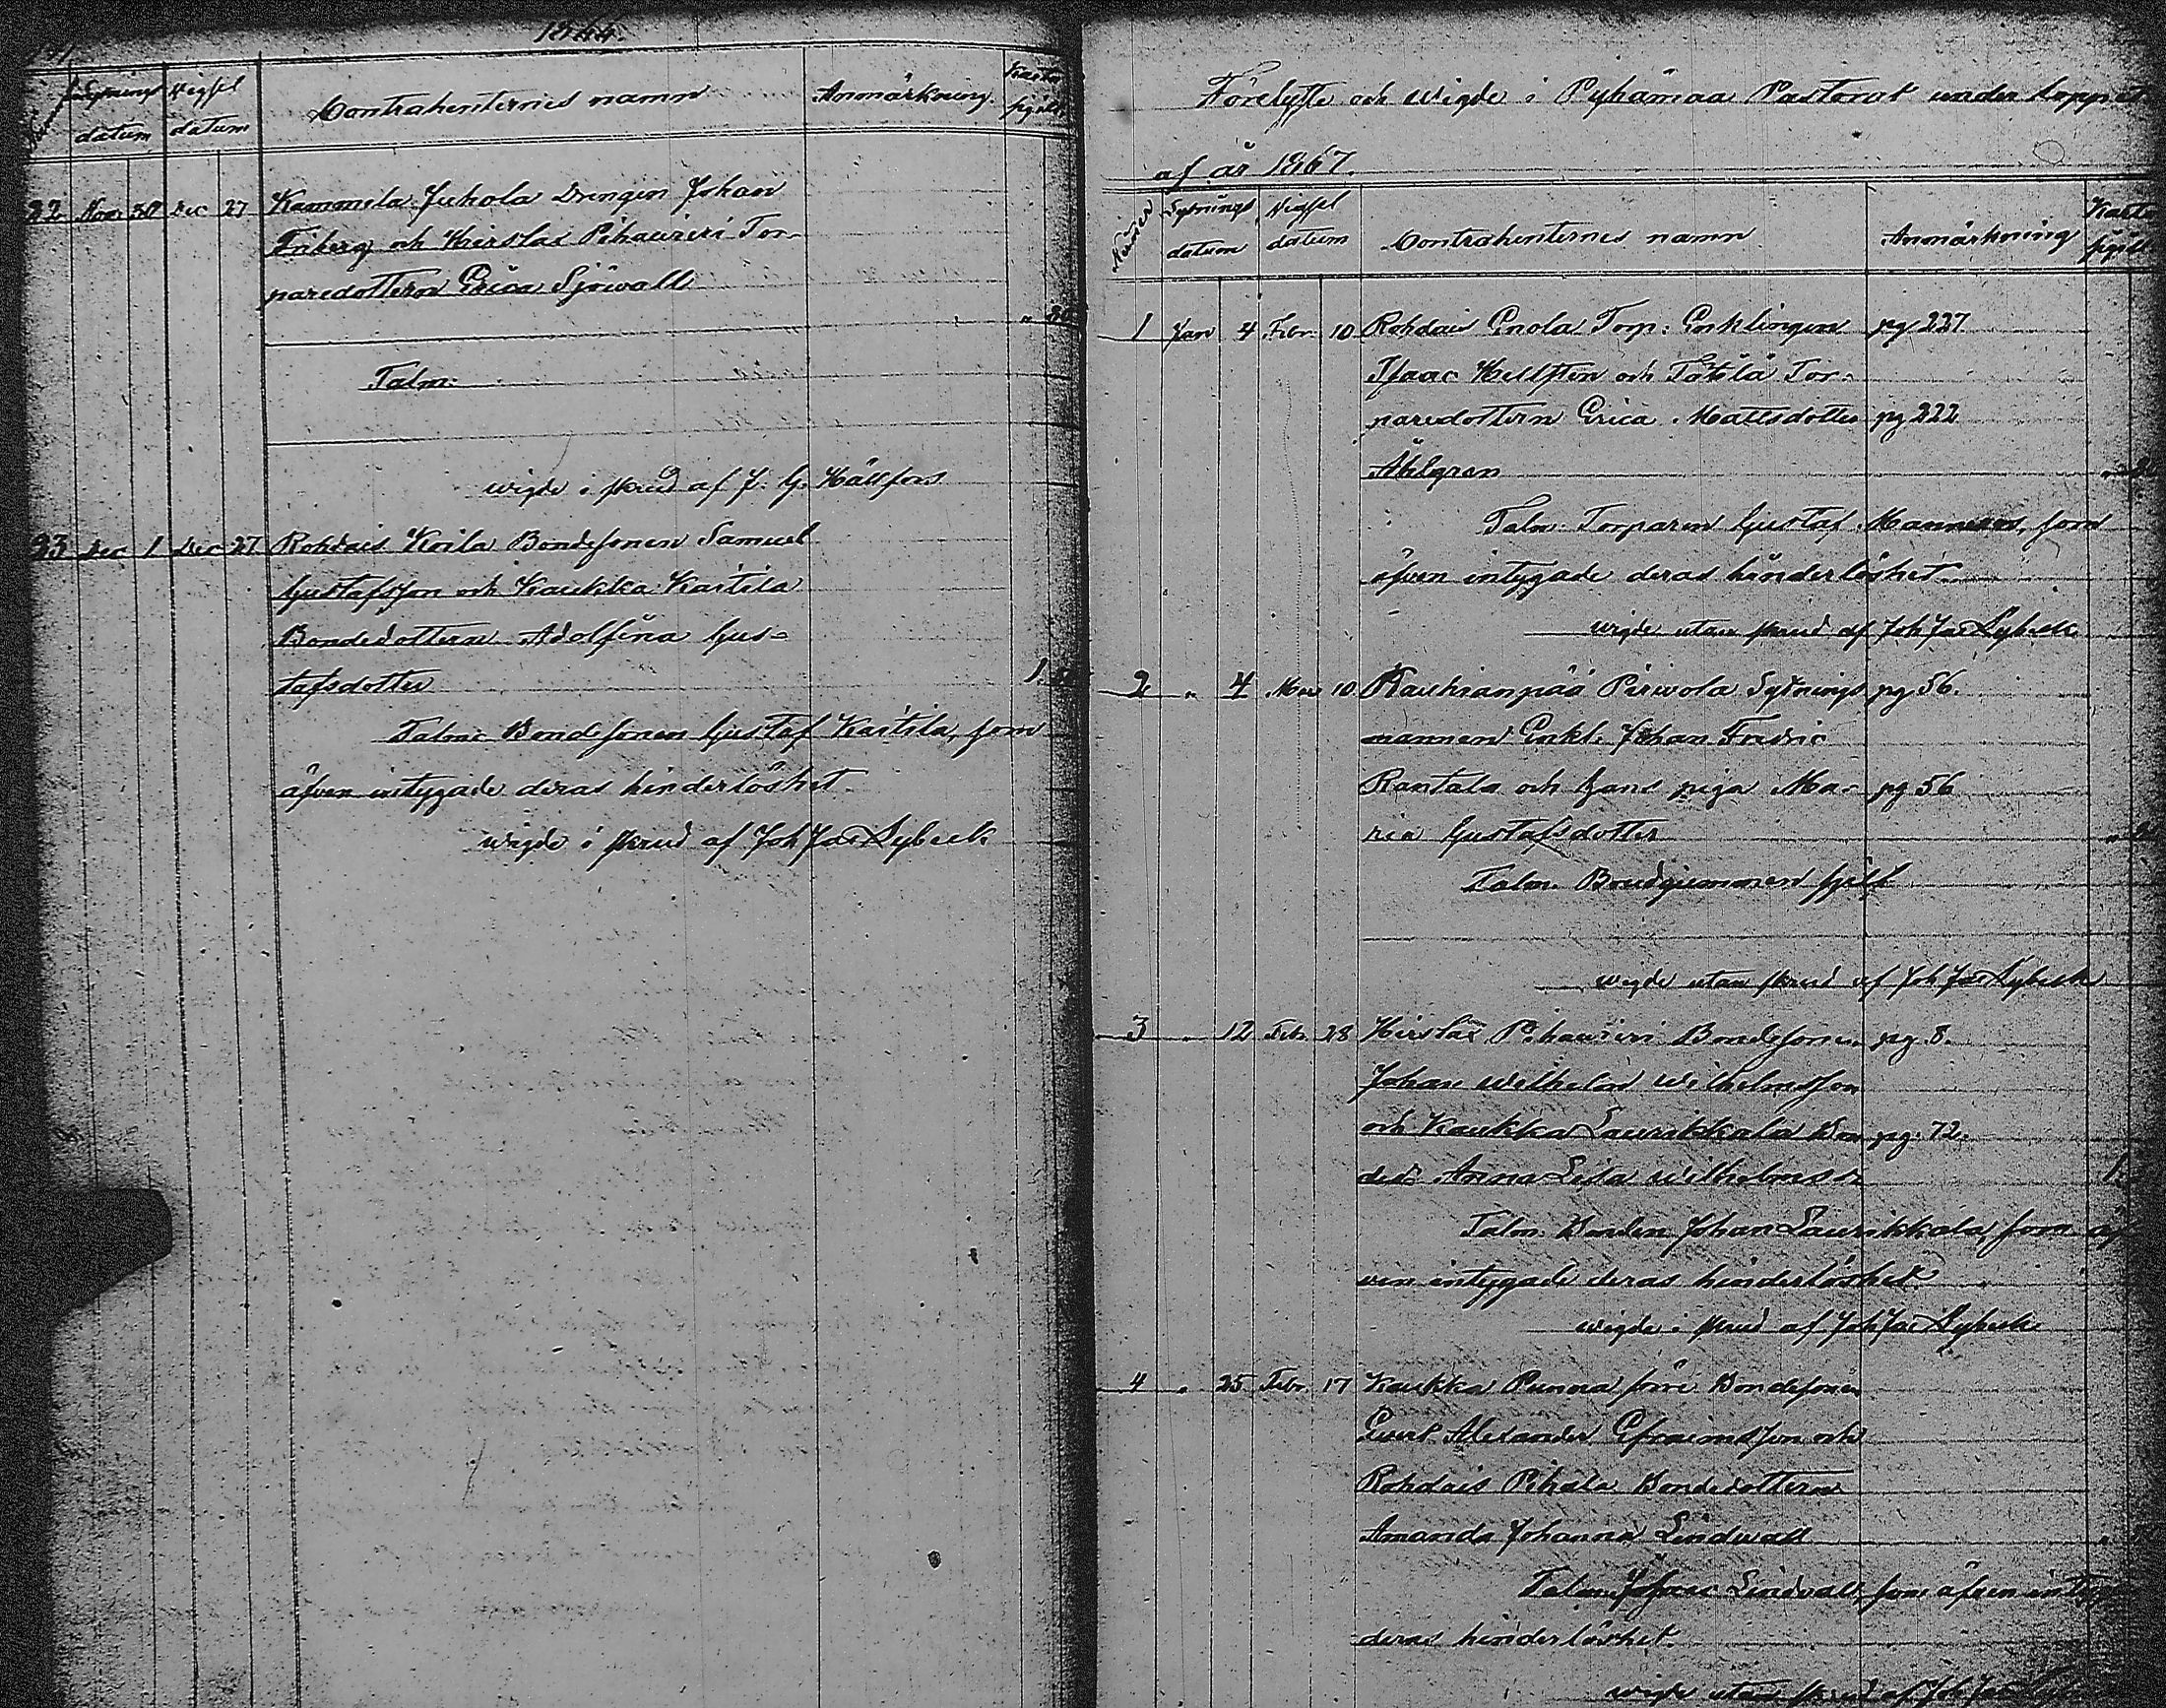 1866.
Lysnings Vigsel Contrahenternes namn Anmärkning
datum datum
22 Nov. 30 Dec 27 Kammela Juhola Drengen Johan
Enberg och Hirslax Pihauriri Tor-
paredottern Erica Sjöwall
" 80
Talm:
wigde i skrud af J. G. Hällfors
23 Dec 1 Dec 27 Rohdais Koila Bondesonen Samuel
Gustafsson och Kaukka Kaitila
Bondedottern Adolfina Gus-
tafsdotter 1
Talm: Bondesonen Gustaf Kaitila, som
äfven intygade deras hinderlöshet.
wigde i skrud af Joh Jac Lybeck
Förelyste och Wigde i Pyhämaa Pastorat under loppet
af år 1867.
Numer Lysnings Vigsel
datum datum Contrahenternes namn Anmärkning
1 Jan 4 Febr. 10 Rohdais Enola Torp: Enklingen pg 227
Isaac Hellsten och Tötälä Tor-
paredottern Erica Mattsdotter pg 222
Åhlgren
Talm: Torparen Gustaf Manners, som
äfven intygade deras hinderlöshet.
wigde utan skrud af Joh Jac Lybeck
2 " 4 Mars 10 Raulianpää Pärwola Sytnings pg 56.
mannen Enkl. Johan Fredric
Rantala och hans piga Ma- pg 56
ria Gustafsdotter
Talm. Brudgummen sjelf
wigde utan skrud af Joh Jac Lybeck
3 " 12 Febr. 28 Hirslax Pihauriri Bondesonen pg. 8.
Johan Wilhelm Wilhelmsson
och Kaukka Laurikkala Bon pg. 72.
ded:r Anna Lisa Wilhelmsdr 1.
Talm: Bonden Johan Laurikkala, som äf
ven intygade deras hinderlöshet
wigde i skrud af Joh Jac Lybeck
4 " 25 Febr. 17 Kaukka Punna förre Bondesonen
Evert Alexander Efraimsson och
Rohdais Pihala Bondedottern
Amanda Johanna Lindwall
Talm: Isaac Lindwall, som äfven intyg
deras hinderlöshet.
wigde utan skrud af Joh Jac